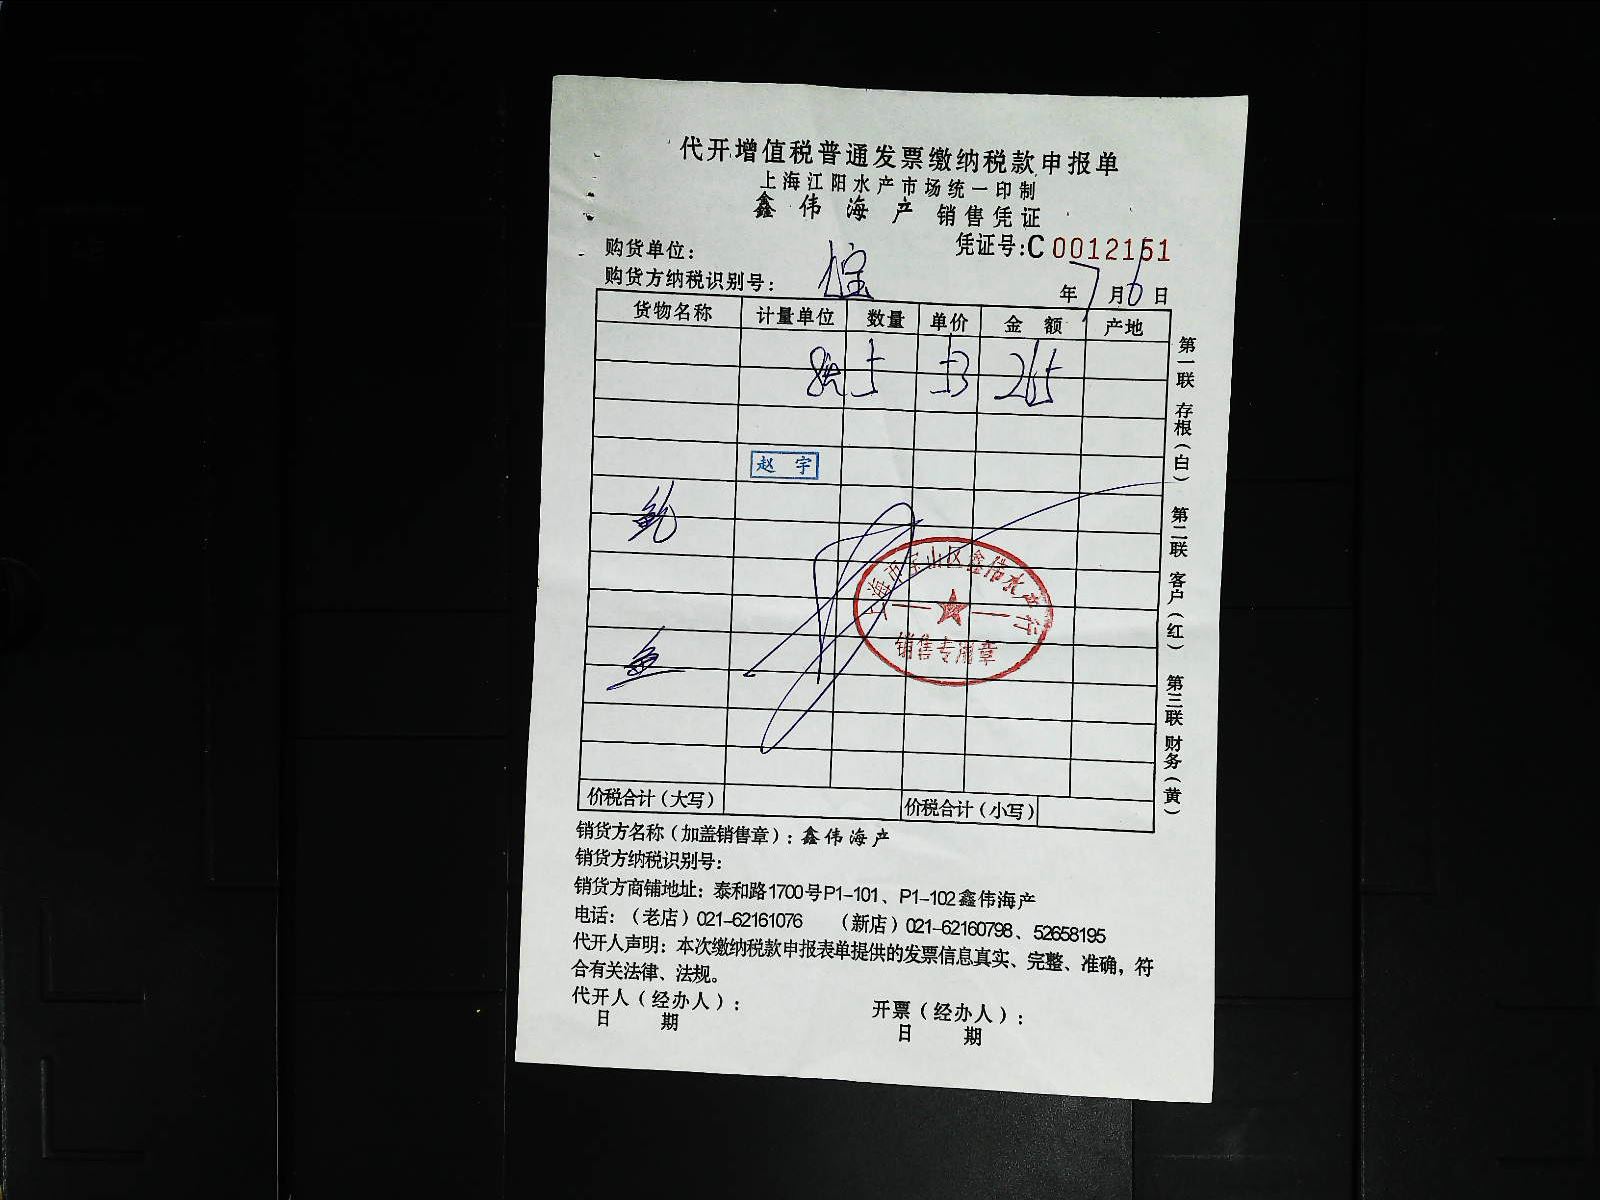 代开增值税普通发票缴纳税款申报单
上海江阳水产市场统一印制
鑫伟海产 销售凭证
购货单位：
凭证号：C 0012151
购货方纳税识别号：
年7月6日
货物名称 计量单位 数量 单价 金额 产地
5 53 265
赵宇
鲍
鱼
上海市宝山区鑫伟水产行
销售专用章
价税合计（大写） 价税合计（小写）
销货方名称（加盖销售章）：鑫伟海产
销货方纳税识别号：
销货方商铺地址：泰和路1700号P1-101、P1-102鑫伟海产
电话：（老店）021-62161076 （新店）021-62160798、52658195
代开人声明：本次缴纳税款申报表单提供的发票信息真实、完整、准确，符
合有关法律、法规。
代开人（经办人）： 开票（经办人）：
日期 日期
第一联 存根（白） 第二联 客户（红） 第三联 财务（黄）